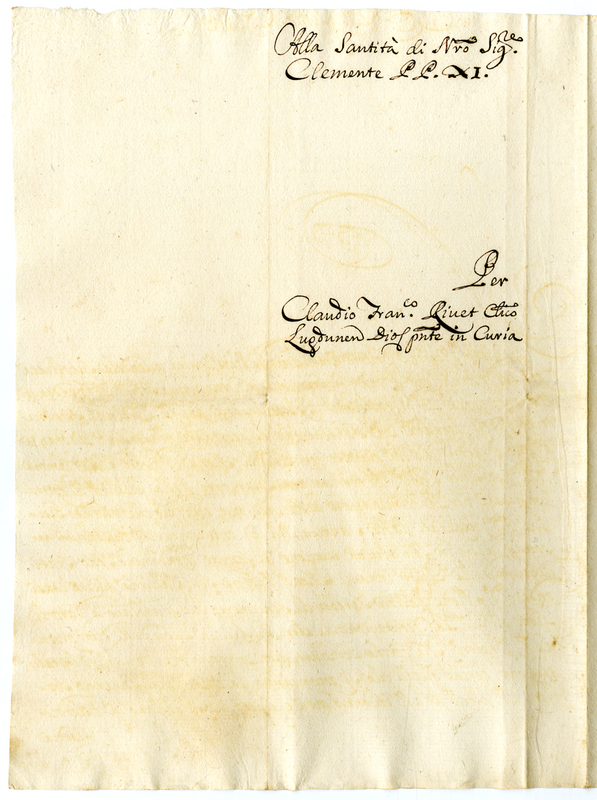 Alla Santità di Nrõ Sig.re
Clemente P P. XI.
Per
Claudio Fran.co Rivet Clico
Lugdunen Dios pnte in Curia